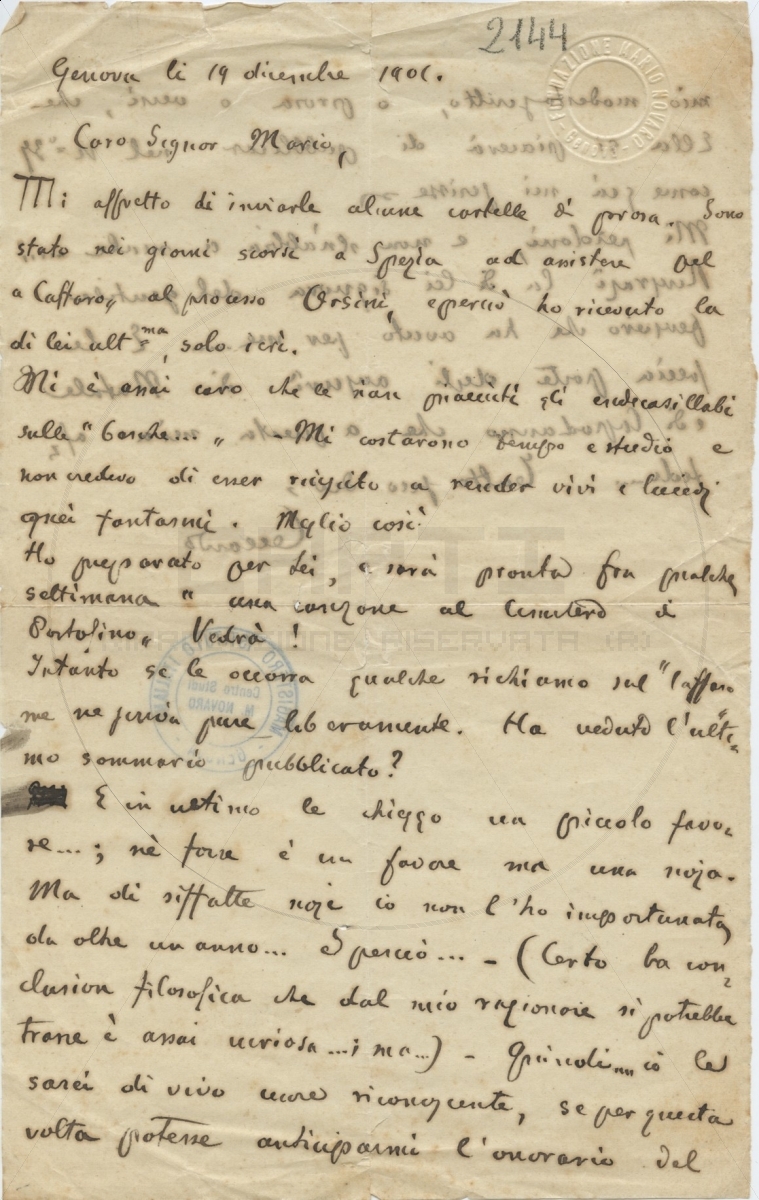 2144
FONDAZIONE MARIO NOVARO
Genova li 19 dicembre 1901.
Caro Signor Mario,
Mi affretto di inviarle alcune cartelle di prosa. Sono
stato nei giorni scorsi a Spezia ad assistere pel
"Caffaro„ al processo Orsini, eperciò ho ricevuto la
di lei ult.ma, solo ieri.
Mi è assai caro che le sian piaciuti gli endecasillabi
sulle "barche... „ - Mi costarono tempo e studio e
non credevo di esser riuscito a render vivi e lucidi
quei fantasmi. Meglio così
Ho preparato per Lei, e sarà pronta fra qualche
settimana " una canzone al Cimitero di
Portofino„ Vedrà!
Intanto se le occorra qualche richiamo sul "Caffaro„
me ne scriva pure liberamente. Ha veduto l'ulti-
mo sommario pubblicato?
E in ultimo le chieggo un piccolo favo-
re...; nè forse è un favore ma una noja.
Ma di siffatte noje io non l'ho importunata
da oltre un anno... Eperciò... - (Certo la con-
clusion filosofica che dal mio ragionare si potrebbe
trarre è assai curiosa...; ma...) - Quindi... io le
sarei di vivo cuore riconoscente, se per questa
volta potesse anticiparmi l'onorario del